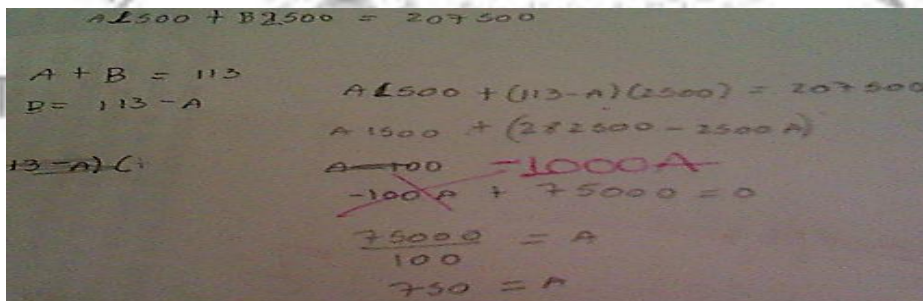 A1500 + B2500 = 207500
A + B = 113
B = 113 - A
A1500 + (113-A)(2500) = 207500
A1500 + (282500 - 2500A)
13-A)(
A-100 -1000A
-100A + 75000 = 0
75000/100 = A
750 = A